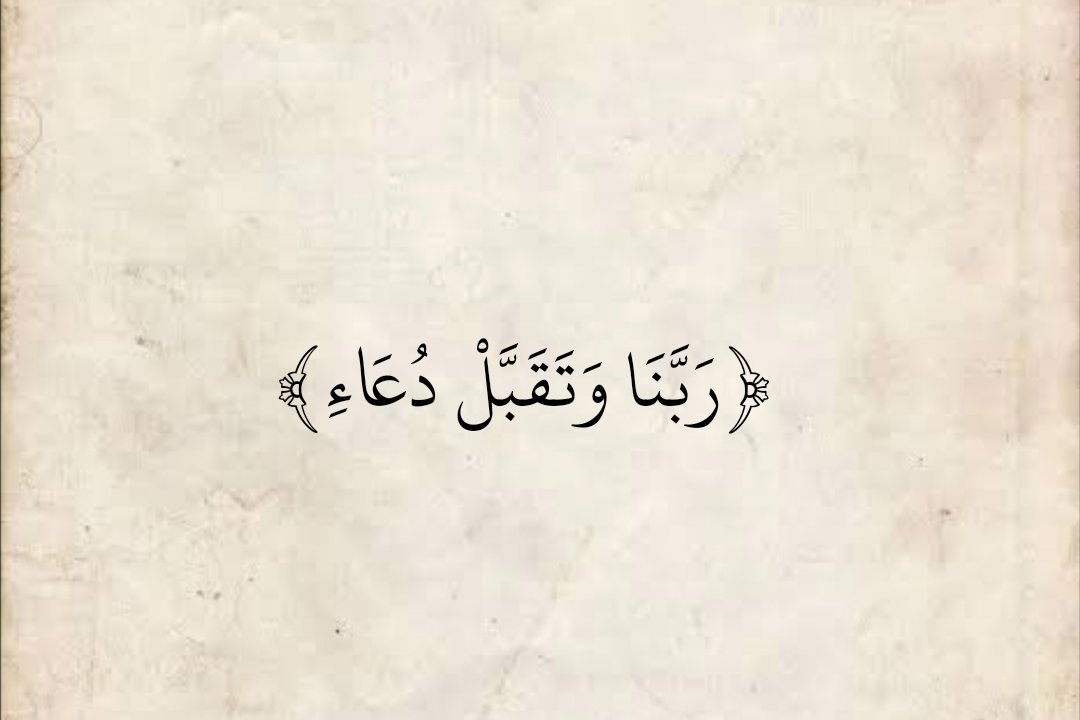 ﴿ رَبَّنَا وَتَقَبَّلْ دُعَاءِ ﴾